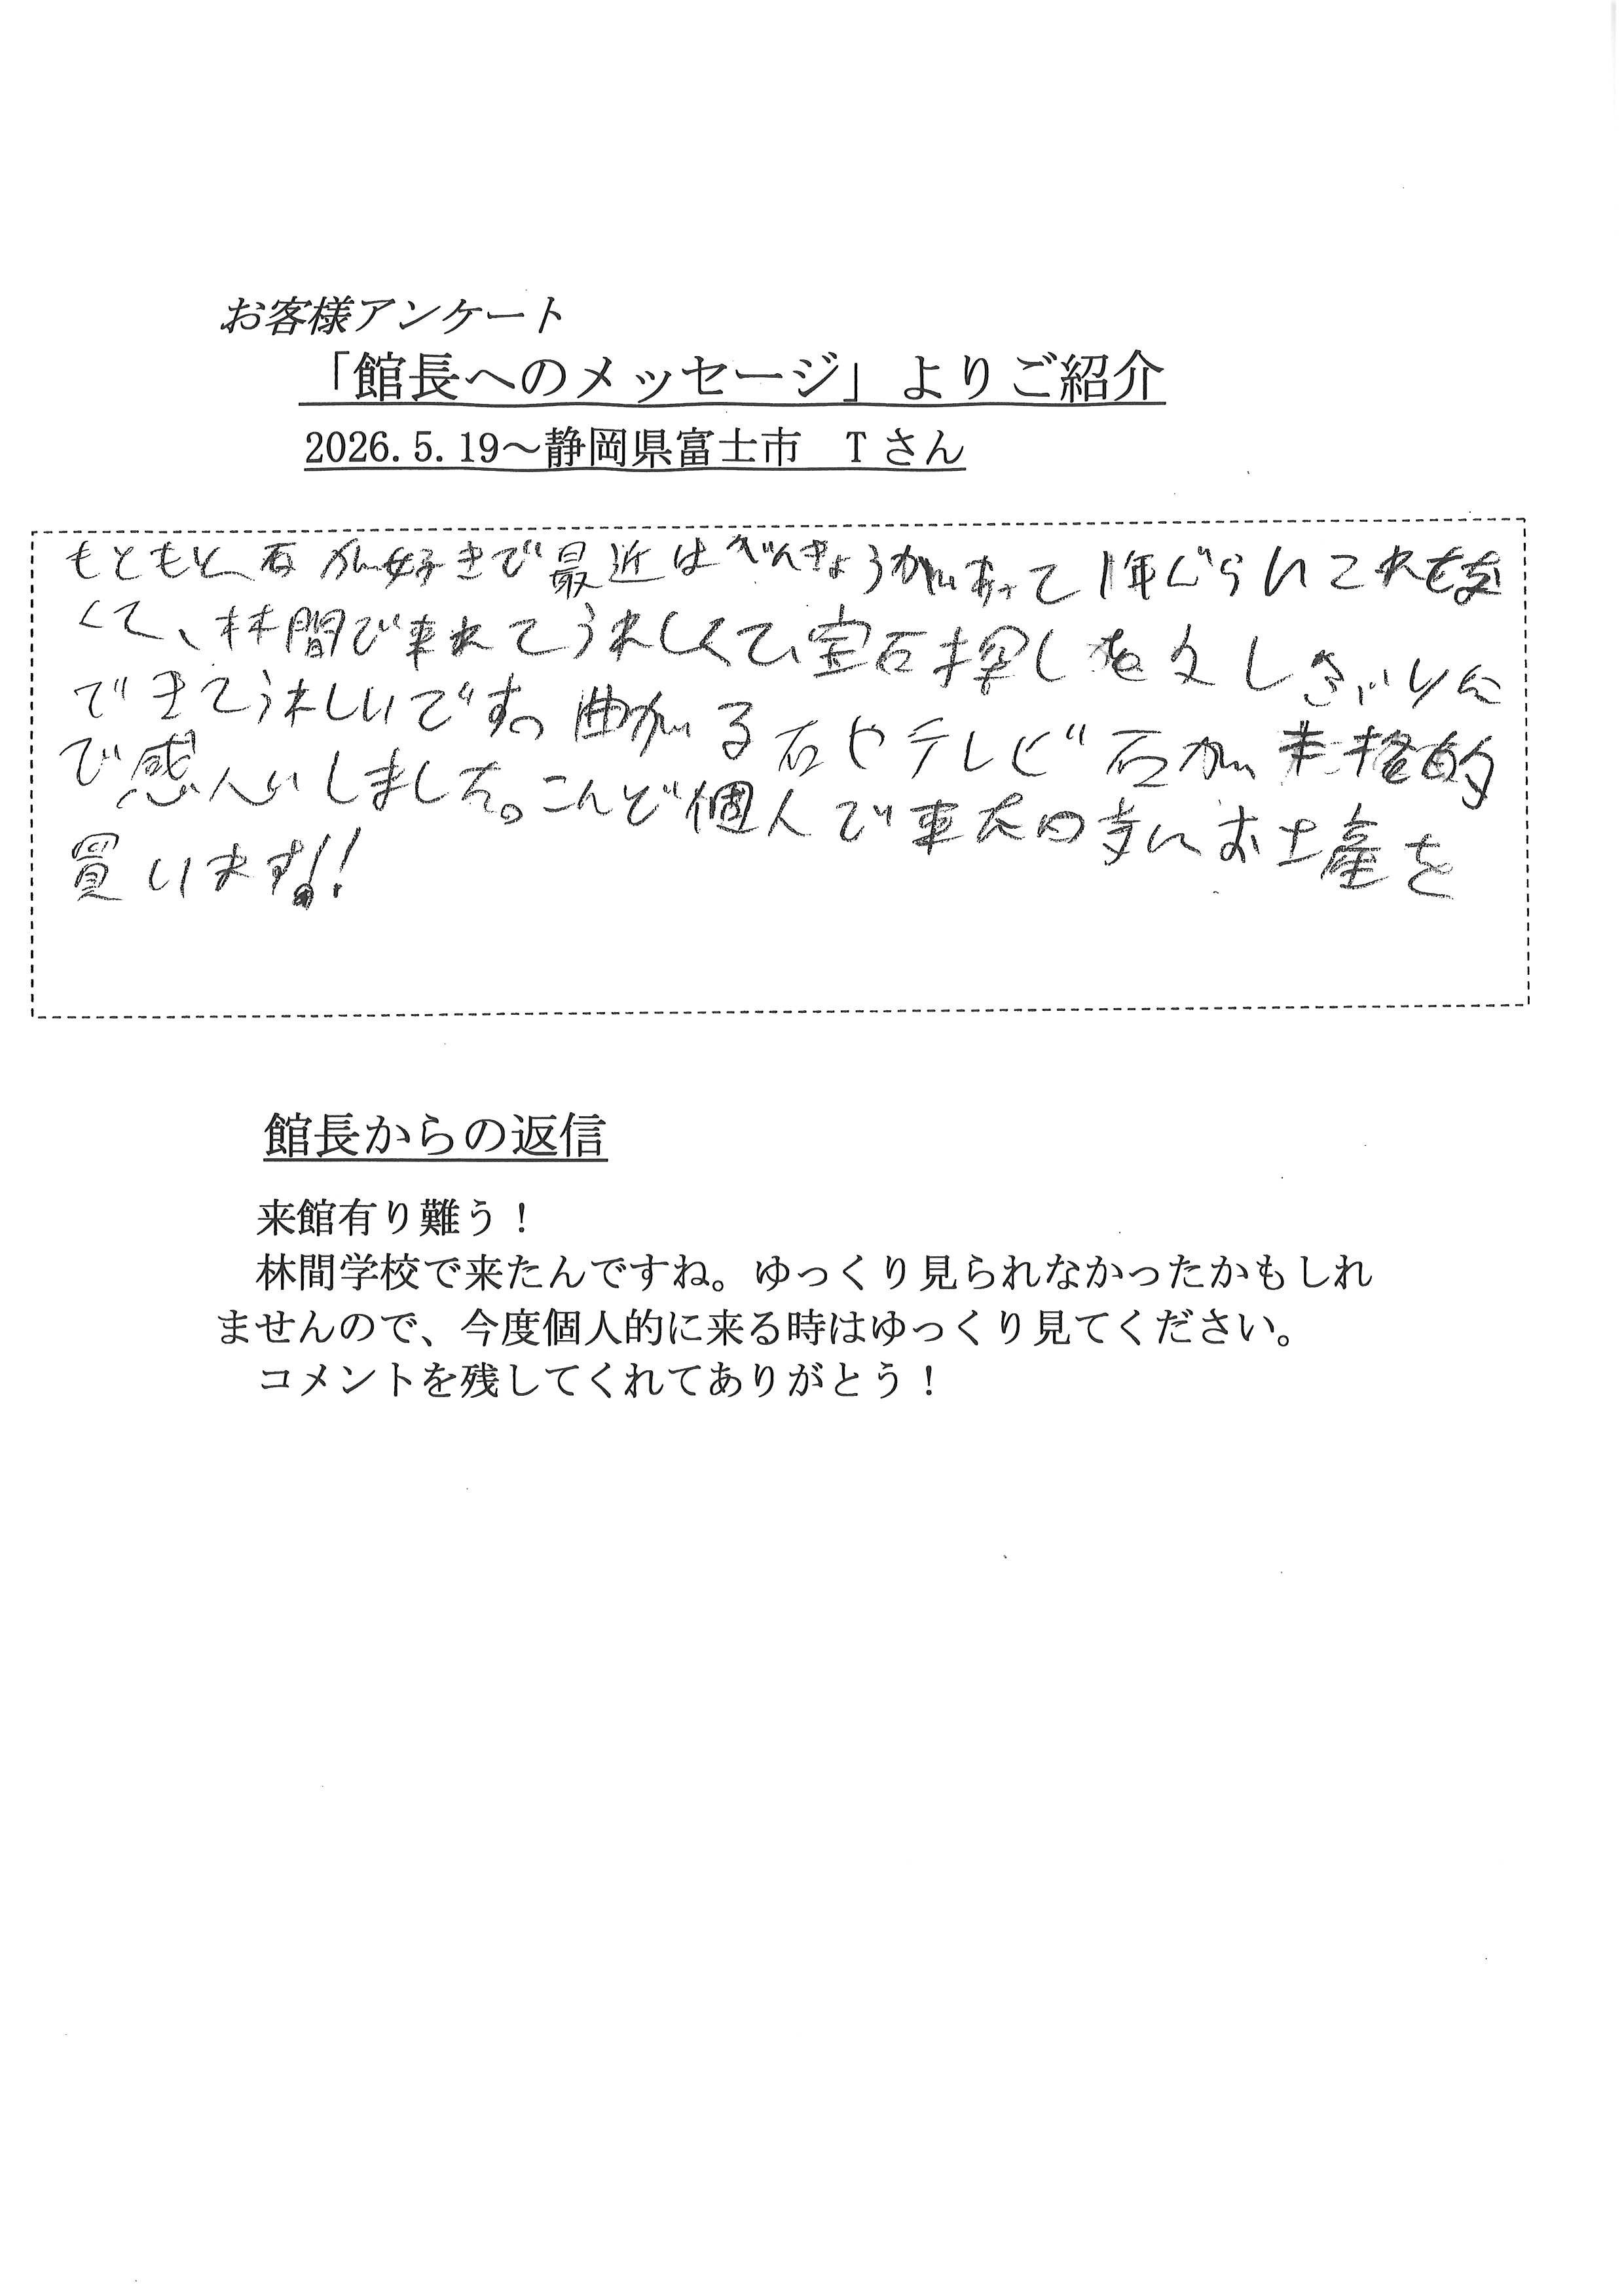 お客様アンケート
「館長へのメッセージ」よりご紹介
2026.5.19～静岡県富士市　Tさん
もともと石が好きで最近はべんきょうがあって1年ぐらいこれな
くて、林間で来れてうれしくて、宝石探しを久しぶりに
できてうれしいです。曲がる石やテレビ石が本格的
で感心しました。こんど個人で来た時にお土産を
買います!!
館長からの返信
来館有り難う！
林間学校で来たんですね。ゆっくり見られなかったかもしれ
ませんので、今度個人的に来る時はゆっくり見てください。
コメントを残してくれてありがとう！